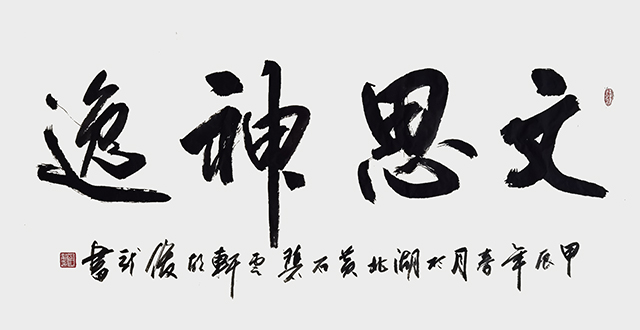 文思神逸
甲辰年春月於湖北黄石碧雲軒胡俊書